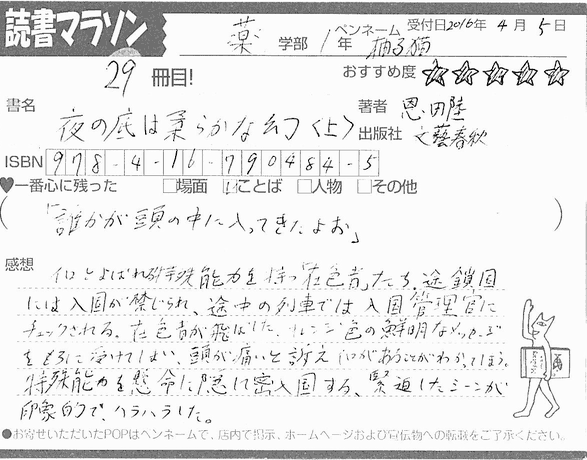 読書マラソン
薬 学部 1年
ペンネーム 柚子猫
受付日2016年 4月 5日
29 冊目!
おすすめ度 ☆☆☆☆☆
書名 夜の底は柔らかな幻〈上〉
著者 恩田陸
出版社 文藝春秋
ISBN 978-4-16-790484-5
♥一番心に残った □場面 ☑ことば □人物 □その他
「誰かが頭の中に入ってきたよお」
感想
イロとよばれる特殊能力を持つ「在色者」たち。途鎖国
には入国が禁じられ、途中の列車では入国管理官に
チェックされる。在色者が飛ばした、オレンジ色の鮮明なメッセージ
をもろに受けてしまい、頭が痛いと訴えイロがあることがわかってしまう。
特殊能力を懸命に隠して密入国する、緊迫したシーンが
印象的で、ハラハラした。
●お寄せいただいたPOPはペンネームで、店内で掲示、ホームページおよび宣伝物への転載をご了承ください。